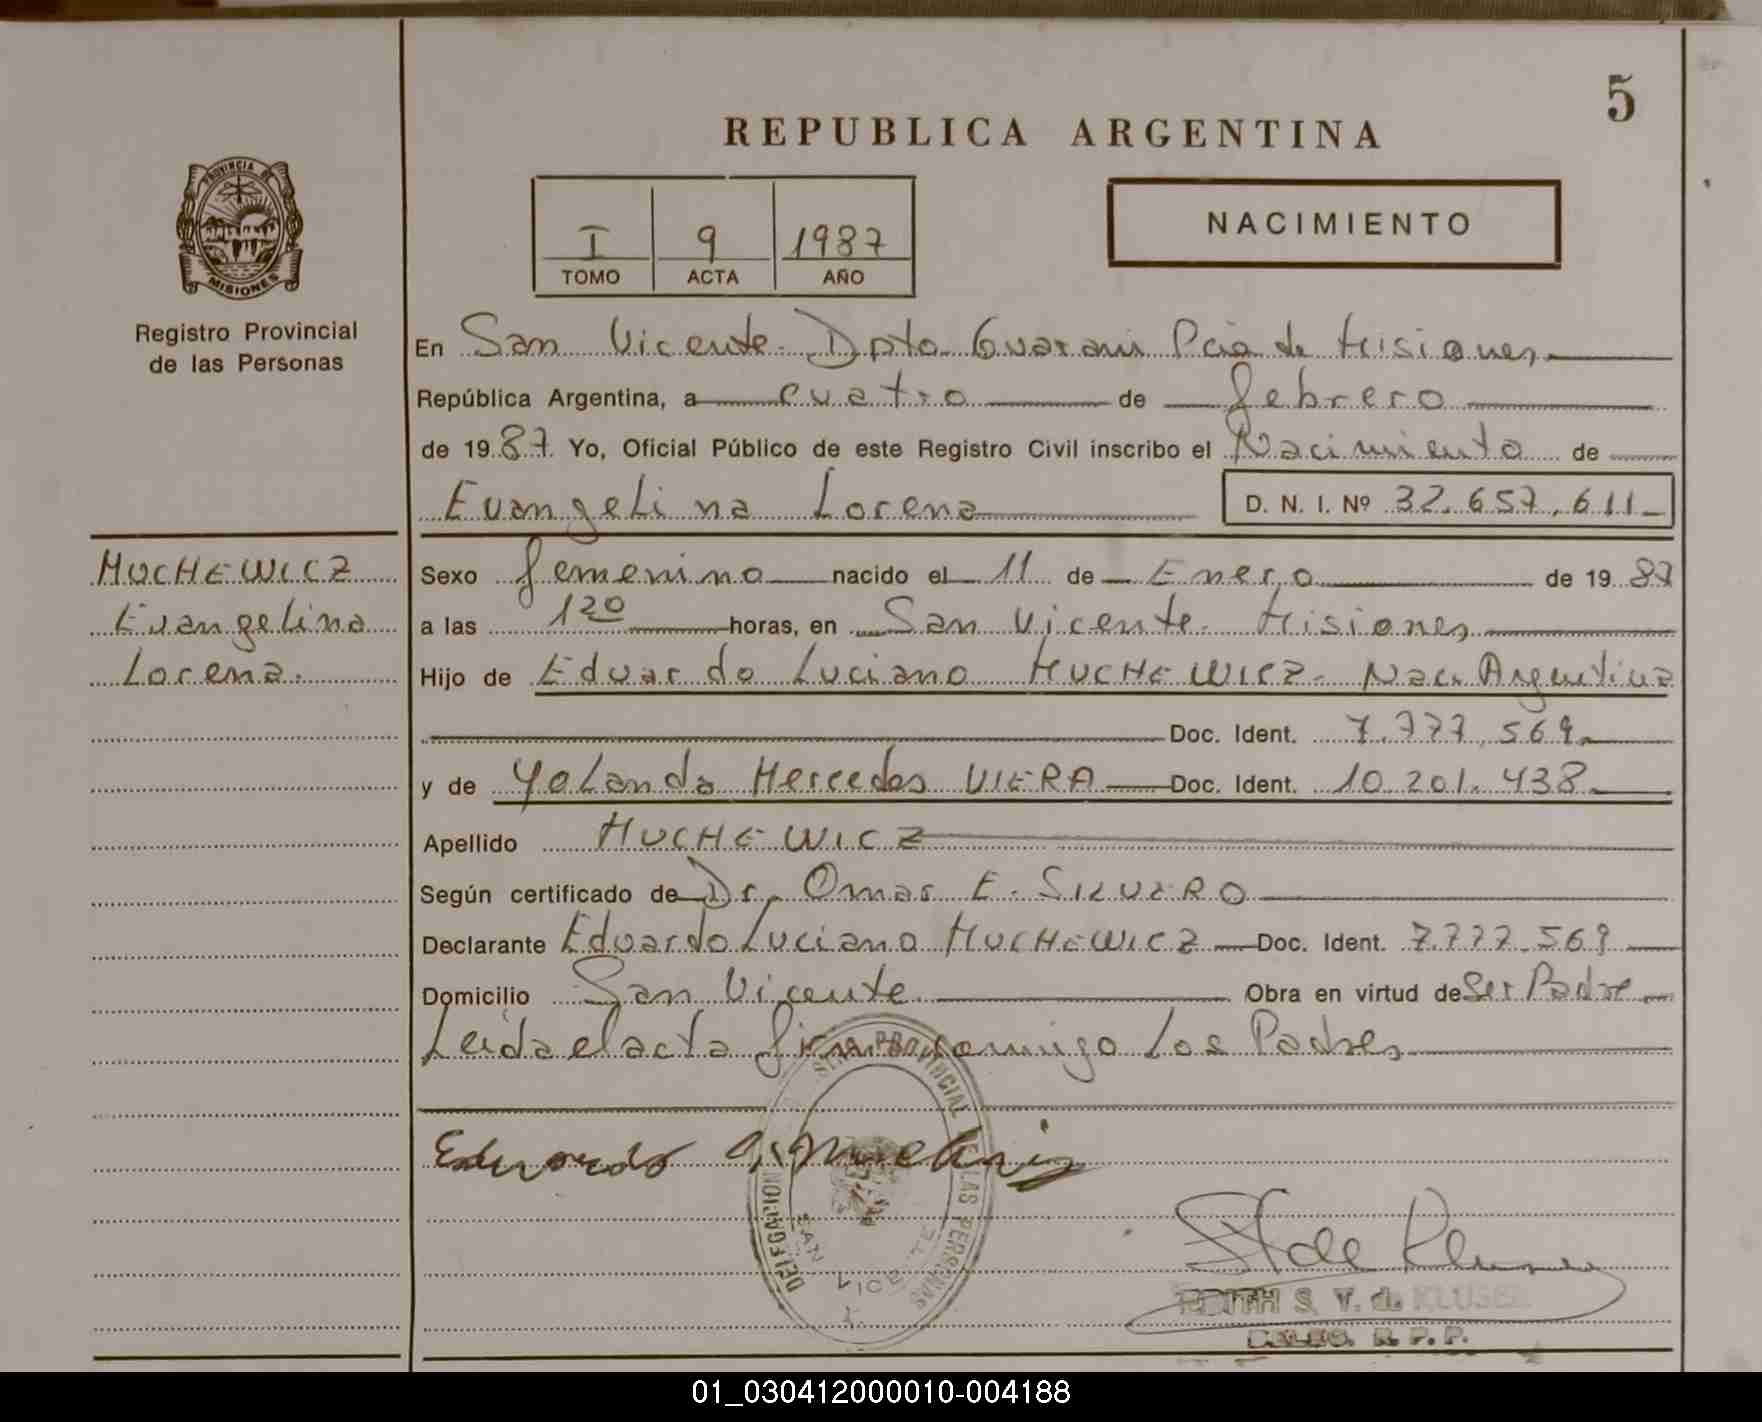 5
REPUBLICA ARGENTINA
PROVINCIA DE
MISIONES
Registro Provincial
de las Personas
I 9 1987
TOMO ACTA AÑO
NACIMIENTO
En San Vicente Dpto Guarani Pcia de Misiones
República Argentina, a cuatro de febrero
de 1987 Yo, Oficial Público de este Registro Civil inscribo el Nacimiento de
Evangelina Lorena D. N. I. Nº 32.657.611
MUCHEWICZ
Evangelina
Lorena.
Sexo femenino nacido el 11 de Enero de 1987
a las 120 horas, en San Vicente Misiones
Hijo de Eduardo Luciano MUCHEWICZ - Nac. Argentina
Doc. Ident. 7.777.569
y de Yolanda Mercedes VIERA Doc. Ident. 10.201.438
Apellido MUCHEWICZ
Según certificado de Dr. Omar E. SILVERO
Declarante Eduardo Luciano MUCHEWICZ Doc. Ident. 7.777.569
Domicilio San Vicente Obra en virtud de Ser Padre
Leida el acta firman conmigo los Padres
Eduardo
DELEGACION SAN VICENTE
PROVINCIAL DE LAS PERSONAS
EDITH S. V. de KLUSE
DELEG. R. P. P.
01_030412000010-004188